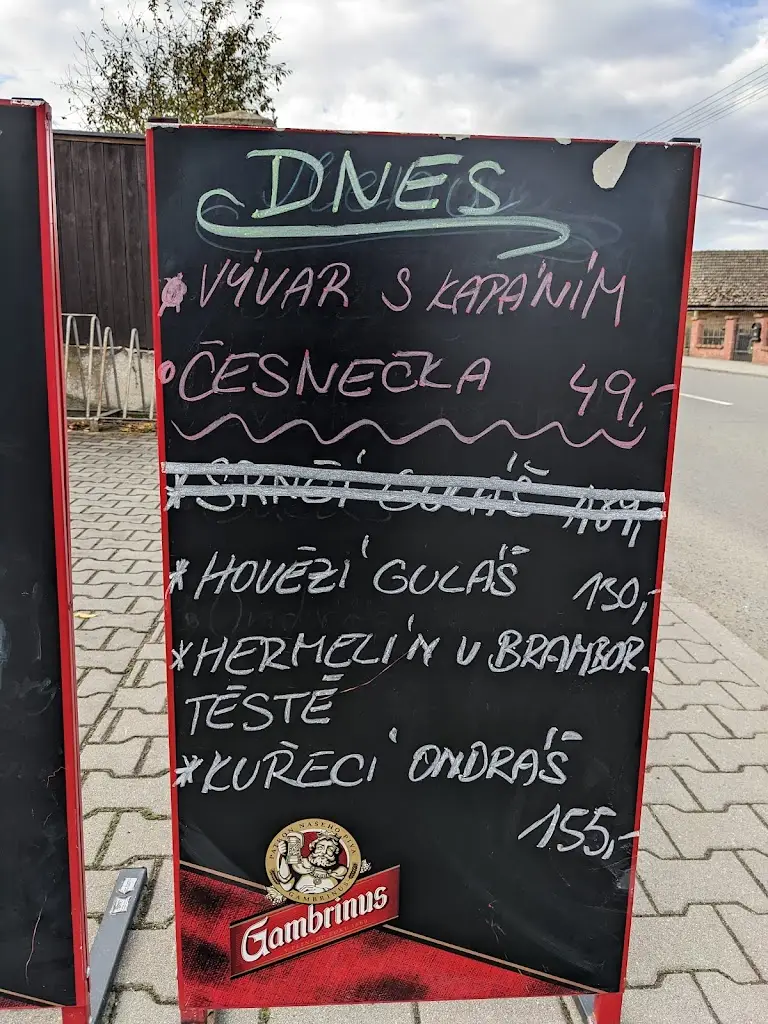 DNES
VÝVAR S KAPÁNÍM
ČESNEČKA 49,-
* SRNČÍ GULÁŠ 189,-
* HOVĚZÍ GULÁŠ 130,-
* HERMELÍN V BRAMBOR.
TĚSTĚ
* KUŘECÍ ONDRÁŠ
155,-
PATRON NAŠEHO PIVA
GAMBRINUS
Gambrinus